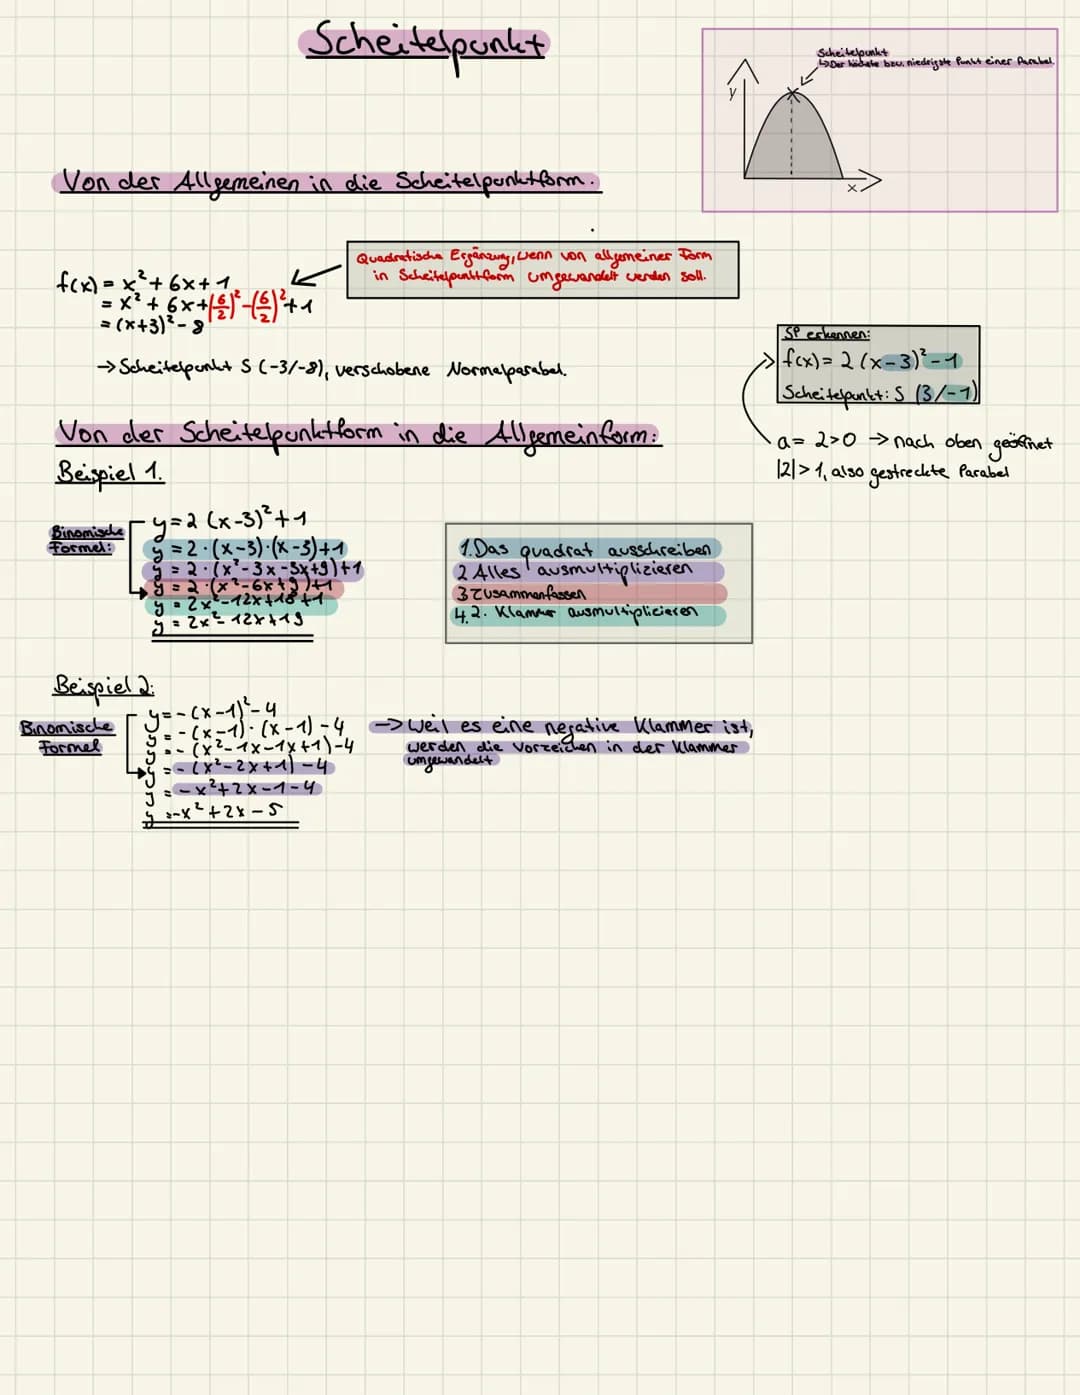 Scheitelpunkt
Scheitelpunkt
↳Der höchste bzw. niedrigste Punkt einer Parabel.
y
x
Von der Allgemeinen in die Scheitelpunktform.
Quadratische Ergänzung, wenn von allgemeiner Form
in Scheitelpunktform umgewandelt werden soll.
f(x) = x² + 6x + 1
= x² + 6x + (6/2)² - (6/2)² + 1
= (x+3)² - 8
→ Scheitelpunkt S (-3/-8), verschobene Normalparabel.
SP erkennen:
f(x) = 2 (x-3)² - 1
Scheitelpunkt: S (3/-1)
a = 2>0 → nach oben geöffnet
|2| > 1, also gestreckte Parabel
Von der Scheitelpunktform in die Allgemeinform:
Beispiel 1.
Binomische
Formel:
y = 2 (x-3)² + 1
y = 2 · (x-3) · (x-3) + 1
y = 2 · (x² - 3x - 3x + 9) + 1
y = 2 · (x² - 6x + 9) + 1
y = 2x² - 12x + 18 + 1
y = 2x² - 12x + 19
1. Das quadrat ausschreiben
2 Alles ausmultiplizieren
3 Zusammenfassen
4. 2. Klammer ausmultiplicieren
Beispiel 2:
Binomische
Formel
y = - (x-1)² - 4
y = - (x-1) · (x-1) - 4
y = - (x² - 1x - 1x + 1) - 4
y = - (x² - 2x + 1) - 4
y = - x² + 2x - 1 - 4
y = -x² + 2x - 5
→ Weil es eine negative Klammer ist,
werden die Vorzeichen in der Klammer
umgewandelt